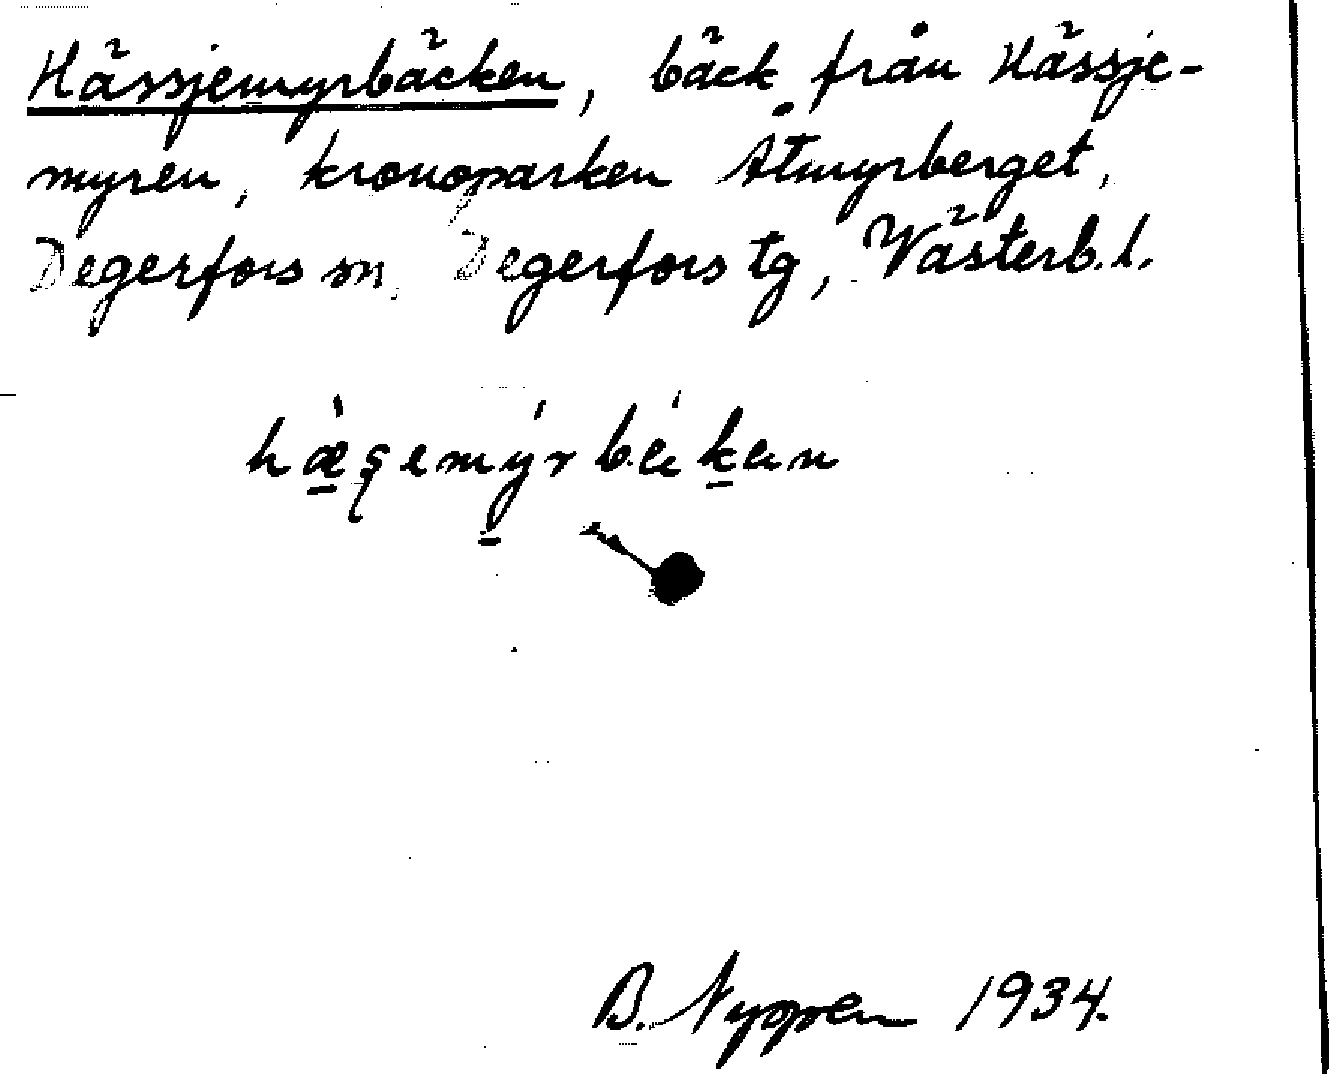 Hässjemyrbäcken, bäck från Hässje-
myren, kronoparken Åtmyrberget,
Degerfors sn, Degerfors tg, Västerb. l.
hæ̀şemýrbékan
B. Nyppen 1934.